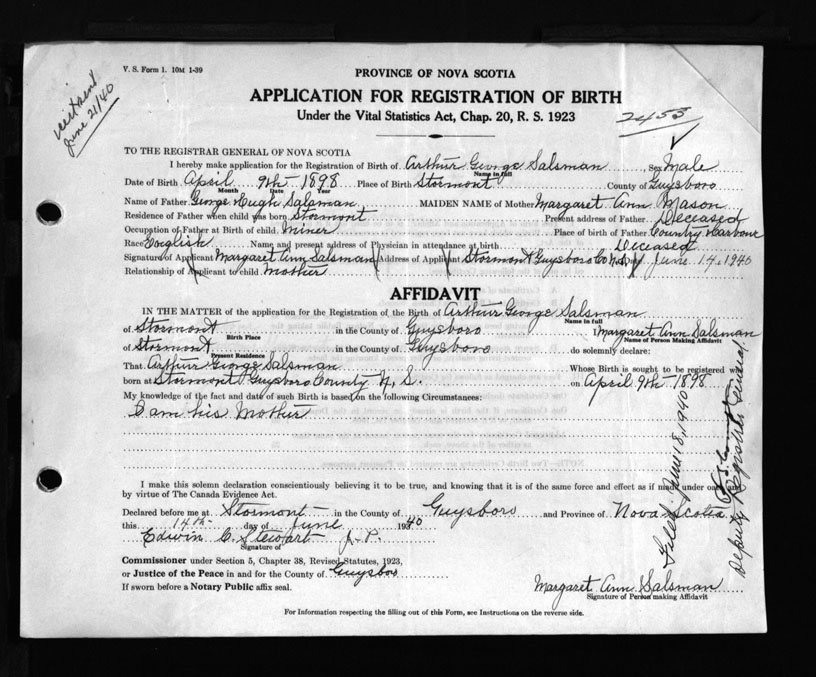 V. S. Form 1. 10M 1-39
PROVINCE OF NOVA SCOTIA
APPLICATION FOR REGISTRATION OF BIRTH
Under the Vital Statistics Act, Chap. 20, R. S. 1923
June 21/40
2455
TO THE REGISTRAR GENERAL OF NOVA SCOTIA
I hereby make application for the Registration of Birth of Arthur George Salsman Sex Male
Name in full
Date of Birth April 9th 1898 Place of Birth Stormont County of Guysboro
Month Date Year
Name of Father George Hugh Salsman MAIDEN NAME of Mother Margaret Ann Mason
Residence of Father when child was born Stormont Present address of Father Deceased
Occupation of Father at Birth of child miner Place of birth of Father Country Harbour
Race English Name and present address of Physician in attendance at birth Deceased
Signature of Applicant Margaret Ann Salsman Address of Applicant Stormont Guysboro Co N.S. Day June 14, 1940
Relationship of Applicant to child mother
AFFIDAVIT
IN THE MATTER of the application for the Registration of the Birth of Arthur George Salsman
Name in full
of Stormont in the County of Guysboro I Margaret Ann Salsman
Birth Place Name of Person Making Affidavit
of Stormont in the County of Guysboro do solemnly declare:
Present Residence
That Arthur George Salsman Whose Birth is sought to be registered was
born at Stormont Guysboro County N. S. on April 9th 1898
My knowledge of the fact and date of such Birth is based on the following Circumstances:
I am his Mother
I make this solemn declaration conscientiously believing it to be true, and knowing that it is of the same force and effect as if made under oath and
by virtue of The Canada Evidence Act.
Declared before me at Stormont in the County of Guysboro and Province of Nova Scotia
this 14th day of June 1940
Edwin C. Stewart J. P.
Signature of
Commissioner under Section 5, Chapter 38, Revised Statutes, 1923,
or Justice of the Peace in and for the County of Guysboro
If sworn before a Notary Public affix seal.
Margaret Ann Salsman
Signature of Person making Affidavit
For Information respecting the filling out of this Form, see Instructions on the reverse side.
Filed June 18, 1940
Deputy Registrar General